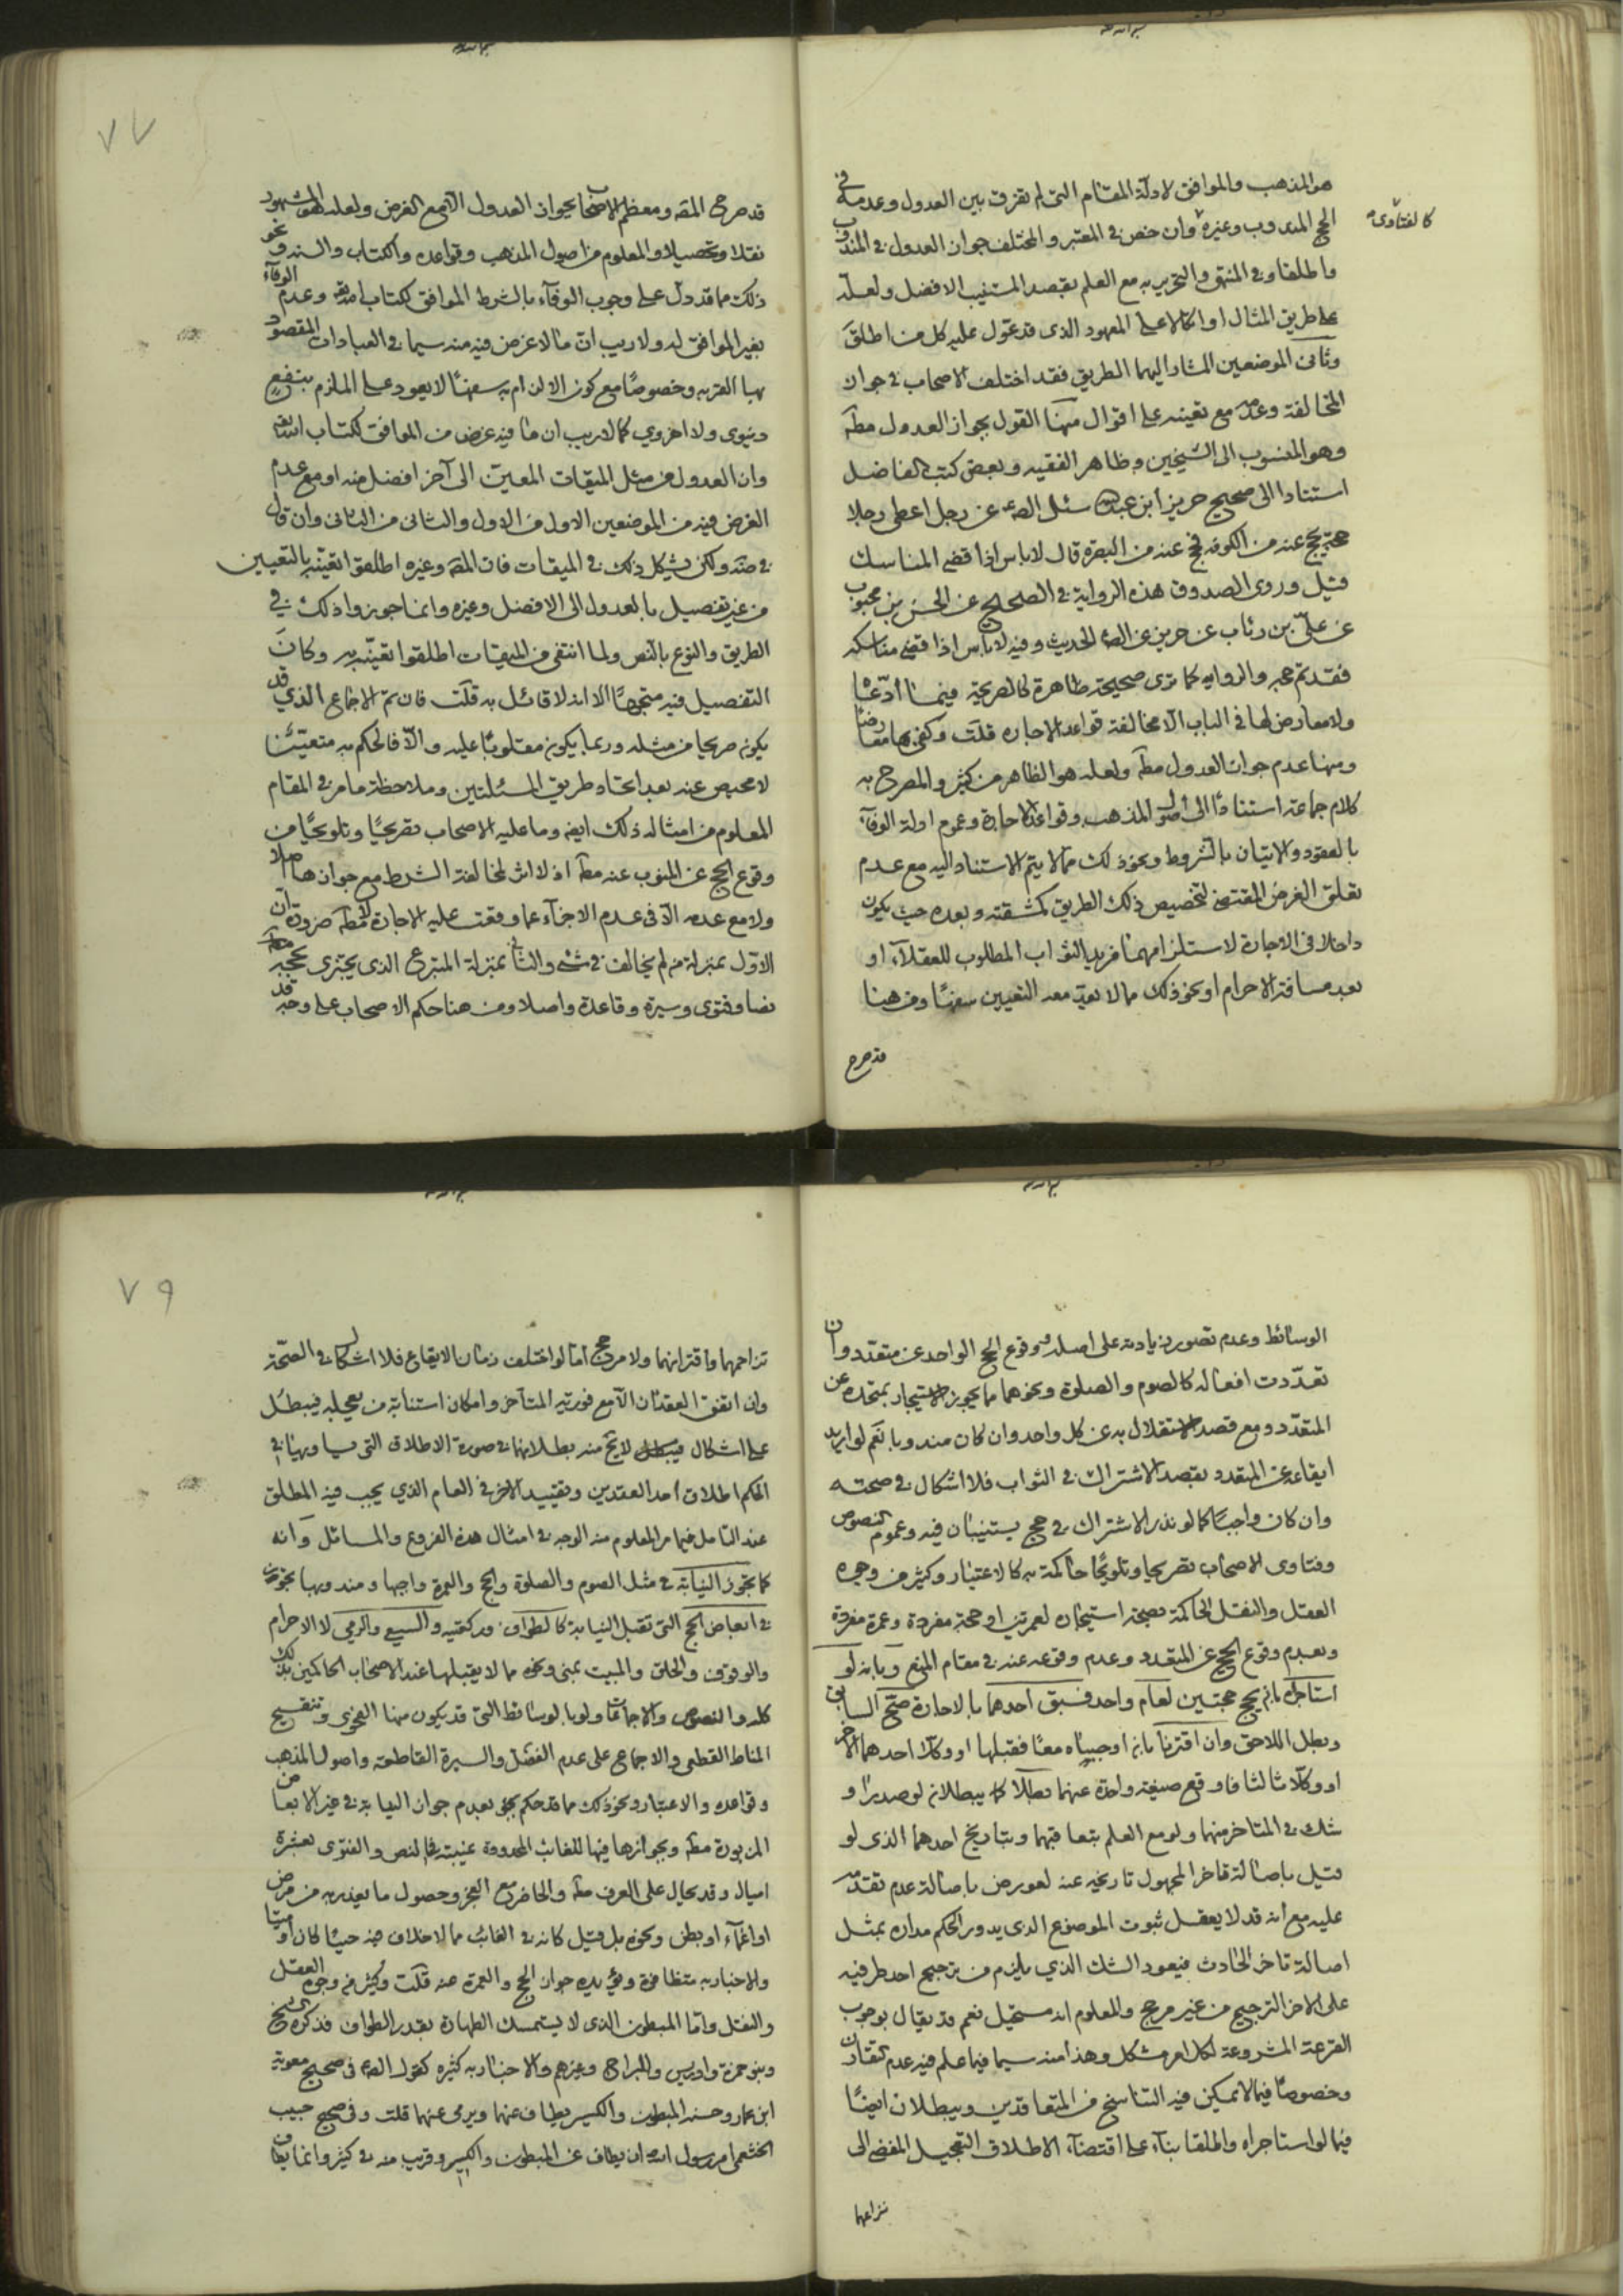 هو المذهب والموافق لادلة المقام التى لم تفرق بين العدول وعدمه فى
الحج المندوب وغيره وان خص فى المعتبر والمختلف جواز العدول فى المندوب
كالفتاوى
ما طلقا وفى المنتهى والتحرير به مع العلم بقصد المستنيب الافضل ولعله
على طريق المثال او اتكالا على المعهود الذى قد عول عليه كل من اطلق
وثانى الموضعين المشار اليهما الطريق فقد اختلف الاصحاب فى جواز
المخالفة وعدمه مع تعينه على اقوال منها القول بجواز العدول مطلقا
وهو المنسوب الى الشيخين وظاهر الفقيه وبعض كتب الفاضل
استنادا الى صحيح حريز ابن عبدالله سئل الصادق عن رجل اعطى رجلا
حجة يحج عنه من الكوفه فحج عنه من البصره قال لاباس اذا قضى المناسك
قيل وروى الصدوق هذه الرواية فى الصحيح عن الحسن بن محبوب
عن على بن رئاب عن حريز عن الصادق الحديث وفيه لاباس اذا قضى مناسكه
فقد تم حجه والروايه كما ترى صحيحة ظاهرة كالصريحة فيما ادعيا
ولا معارض لها فى الباب الا مخالفة قواعد الاجاره قلت وكفى بها معارضا
ومنها عدم جواز العدول مطلقا ولعله هو الظاهر من كثير والمصرح به
كلام جماعة استنادا الى اصول المذهب وقواعد الاجارة وعموم ادلة الوفآء
بالعقود والاتيان بالشروط ونحو ذلك مما لا يتم الاستناد اليه مع عدم
تعلق الغرض المقتضى لتخصيص ذلك الطريق كمشقته وبعده حيث يكون
داخلا فى الاجارة لاستلزامهما مزيد الثواب المطلوب للعقلآء او
بعد مسافة الاحرام او نحو ذلك مما لا يعد معه التعيين سفها ومن هنا
قد صرح
٧٧
قد صرح المص ومعظم الاصحاب بجواز العدول الا مع الغرض ولعله هو المشهور
نقلا وتحصيلا والمعلوم من اصول المذهب وقواعده والكتاب والسنه ونحو
ذلك مما قد دل على وجوب الوفآء بالشرط الموافق لكتاب الله وعدم الوفآء
بغير الموافق له ولا ريب ان ما لا غرض فيه منه سيما فى العبادات المقصود
بها القربه وخصوصا مع كون الالزام به سفها لا يعود على الملزم بنفع
دنيوى ولا اخروي كما لا ريب ان ما فيه غرض من الموافق لكتاب الله
وان العدول من مثل الميقات المعين الى آخر افضل منه او مع عدم
الغرض فيه من الموضعين الاول من الاول والثانى من الثانى وان قال
فى ضه ولكن يشكل ذلك فى الميقات فان المص وغيره اطلقوا تعينه بالتعيين
من غير تفصيل بالعدول الى الافضل وغيره وانما جوزوا ذلك فى
الطريق والنوع بالنص ولما انتفى فى الميقات اطلقوا تعينه به وكان
التفصيل فيه متجها الا انه لا قائل به قلت فان تم الاجماع الذي قد
يكون صريحا من مثله وربما يكون مقلوبا عليه والا فالحكم به متعينا
لا محيص عنه بعد اتحاد طريق المسئلتين وملاحظة ما مر فى المقام
المعلوم من امثاله ذلك ايضا وما عليه الاصحاب تصريحا وتلويحا من
وقوع الحج عن المنوب عنه مطلقا اذ لا اثر لمخالفة الشرط مع جوازها اصلا
ولا مع عدمه الا فى عدم الاجزآء عما وقعت عليه الاجارة لا مطلقا ضرورة ان
الاول بمنزلة من لم يخالف فى شئ والثانى بمنزلة المتبرع الذى يجتزى بحجه مطلقا
نصا وفتوى وسيرة وقاعدة واصلا ومن هنا حكم الاصحاب على وجه قد
الوسائط وعدم تصور زيادته على اصله وقوع الحج الواحد عن متعدد وان
تعددت افعاله كالصوم والصلوة ونحوهما مما يجوز الاستيجار بمتحده عن
المتعدد ومع قصد الاستقلال به عن كل واحد وان كان مندوبا نعم لو اريد
ايقاعه عن المتعدد بقصد الاشتراك فى الثواب فلا اشكال فى صحته
وان كان واجبا كما لو نذر الاشتراك فى حج يستنيبان فيه وعموم النصوص
وفتاوى الاصحاب تصريحا وتلويحا حاكمة به كالاعتبار وكثير من وجوه
العقل والنقل الحاكمة بصحة استيجاره لعمرتين او حجة مفردة وعمرة مفردة
وبعدم وقوع الحج عن المتعدد وعدم وقوعه عنه فى مقام المنع وبانه لو
استاجراه بانه يحج حجتين لعام واحد فسبق احدهما بالاجارة صح السابق
وبطل اللاحق وان اقترنا بانه اوجباه معا فقبلها او وكلا احدهما الاخر
او وكلا ثالثا فاوقع صيغة واحدة عنهما بطلا كما يبطلان لو صدرا و
شك فى المتاخر منهما ولو مع العلم بتعاقبهما وبتاريخ احدهما الذى لو
قيل باصالة تاخر المجهول تاريخه عنه لعورض باصالة عدم تقدمه
عليه مع انه قد لا يعقل ثبوت الموضوع الذى يدور الحكم مداره بمثل
اصالة تاخر الحادث فيعود الشك الذي يلزم من ترجيح احد طرفيه
على الاخر الترجيح من غير مرجح والمعلوم انه مستحيل نعم قد يقال بوجوب
القرعة المشروعة لكل امر مشكل وهذا منه سيما فيما علم فيه عدم التقارن
وخصوصا فيما لا يمكن فيه التفاسخ من المتعاقدين ويبطلان ايضا
فيما لو استاجراه واطلقا بناء على اقتضآء الاطلاق التعجيل المفضى الى
تزاحمهما
٧٩
تزاحمهما واقترانهما ولا مرجح اما لو اختلف زمان الايقاع فلا اشكال فى الصحة
وان اتفق العقدان الا مع فورية المتاخر وامكان استنابة من يعجله فيبطل
على اشكال لا يخ منه بطلانهما فى صورة الاطلاق التى يساويها فى
الحكم اطلاق احد العقدين وتقييد الاخر فى العام الذي يجب فيه المطلق
عند التامل فيما مر المعلوم منه الوجه فى امثال هذه الفروع والمسائل وانه
كما تجوز النيابة فى مثل الصوم والصلوة والحج والعمرة واجبها ومندوبها تجوز
فى ابعاض الحج التى تقبل النيابة كالطواف وركعتيه والسعي والرمى لا الاحرام
والوقوف والحلق والمبيت بمنى ونحوه مما لا يقبلها عند الاصحاب الحاكمين بذلك
كله والنصوص والاجماعات ولو بالوسائط التى قد يكون منها الفحوى وتنقيح
المناط القطعى والاجماعى على عدم الفصل والسيرة القاطعة واصول المذهب
وقواعده والاعتبار ونحو ذلك مما قد حكم بعدم جواز النيابة فى غير الابعاض
المزبورة مطلقا وبجوازها فيها للغائب المحدودة غيبته فى النص والفتوى بعشرة
اميال وقد يحال على العرف مطلقا والحاضر مع العجز وحصول ما يعذر به من مرض
او اغمآء او بطن ونحوه بل قيل كانه فى الغائب مما لا خلاف فيه حيا كان او ميتا
والاخبار به متظافرة ويؤيده جواز الحج والعمرة عنه قلت وكثير من وجوه العقل
والنقل واما المبطون الذى لا يستمسك الطهارة بقدر الطواف فذكره الشيخ
وبنو حمزة وادريس والبراج وغيرهم والاخبار به كثيره كقول الصادق فى صحيح معوية
ابن عمار وحسنه المبطون والكسير يطاف عنهما ويرمى عنهما قلت وفى صحيح حبيب
الخثعمى امر رسول الله ان يطاف عن المبطون والكسير وقريب منه فى كثير وانما يطاف